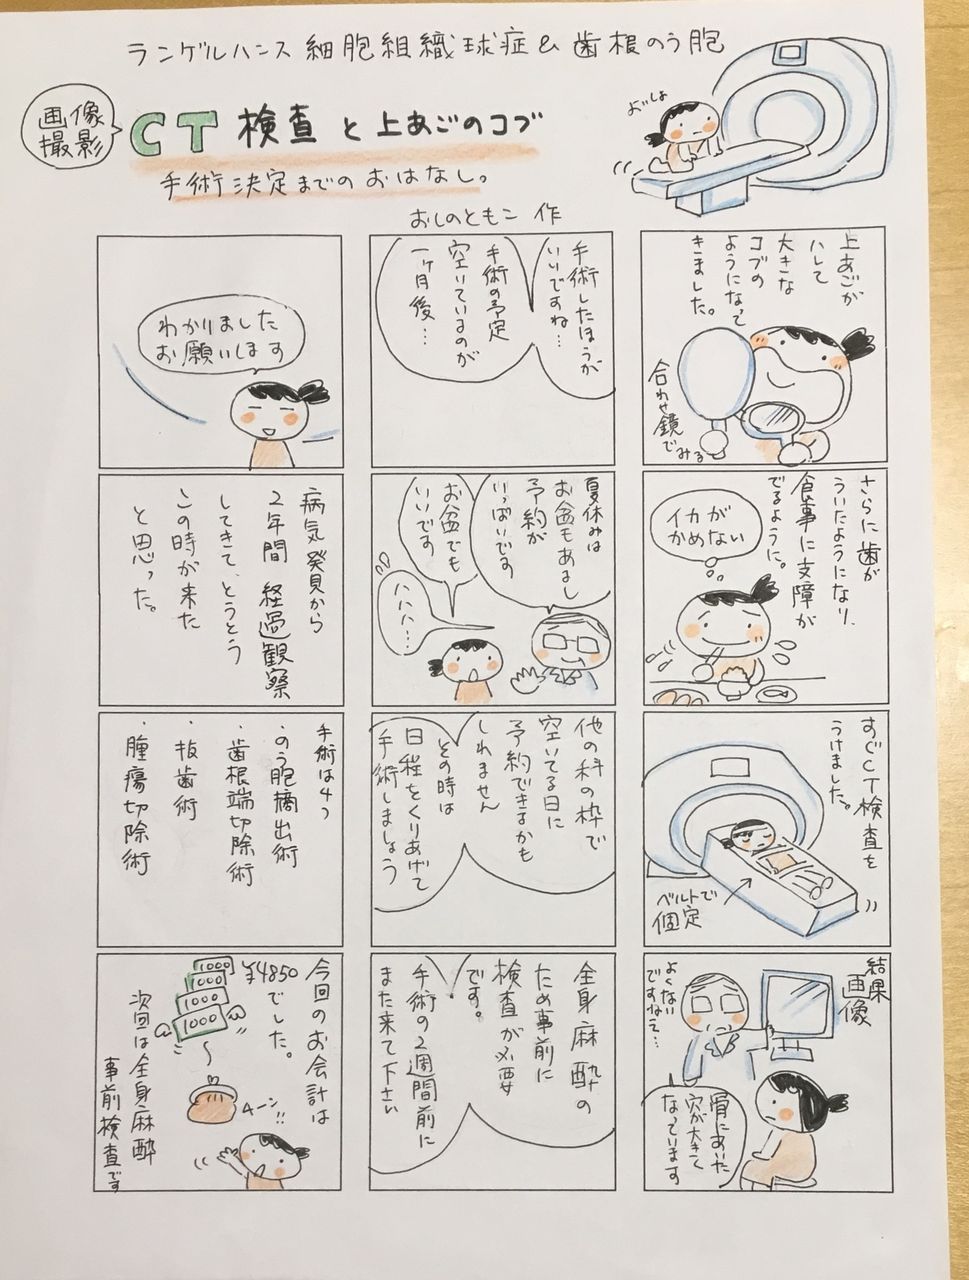 ランゲルハンス細胞組織球症&歯根のう胞
画像
撮影
CT検査と上あごのコブ
手術決定までのおはなし。
おしのともこ 作
よいしょ
上あごが
ハレて
大きな
コブの
ようになって
きました。
合わせ鏡でみる
さらに歯が
ういたようになり、
食事に支障が
でるように。
イカが
かめない
すぐCT検査を
うけました。
ベルトで
固定
結果
画像
よくない
ですねえ…
骨にあいた
穴が大きく
なっています
手術したほうが
いいですね…
手術の予定
空いているのが
一ヶ月後…
夏休みは
お盆もあるし
予約が
いっぱいです
お盆でも
いいです
ハハハ…
他の科の枠で
空いてる日に
予約できるかも
しれません
その時は
日程をくりあげて
手術しましょう
全身麻酔の
ため事前に
検査が必要
です。
手術の2週間前に
また来て下さい
わかりました
お願いします
病気発見から
2年間 経過観察
してきて、とうとう
この時が来た
と思った。
手術は4つ
・のう胞摘出術
・歯根端切除術
・抜歯術
・腫瘍切除術
今回のお会計は
¥4850
でした。
1000
1000
1000
1000
~
4ーン!!
次回は全身麻酔
事前検査です